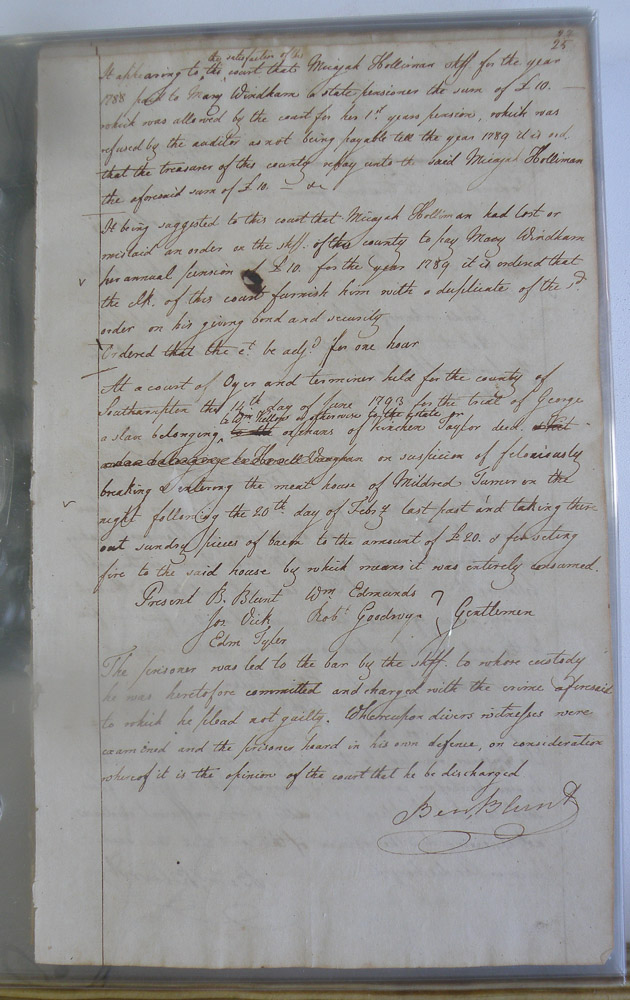 25
the satisfaction of the
It appearing to the court that Micajah Holliman shff. for the year
1788 paid to Mary Windham a state pensioner the sum of £10. —
which was allowed by the court for her 1st. years pension, which was
refused by the auditor as not being payable till the year 1789 it is ord.
that the treasurer of this county repay unto the said Micajah Holliman
the aforesaid sum of £10. — &c
It being suggested to this court that Micajah Holliman had lost or
mislaid an order on the shff. of this county to pay Mary Windham
her annual pension £10. for the year 1789 it is ordered that
the clk. of this court furnish him with a duplicate of the sd.
order on his giving bond and security
Ordered that the ct. be adjd. for one hour
At a court of Oyer and terminer held for the county of
Southampton the 14th day of June 1793 for the trial of George
to Wm. or otherwise to the estate or
a slave belonging orphans of Kinchen Taylor decd.
Vaughan on suspicion of feloniously
breaking & entering the meat house of Mildred Turner on the
night following the 20th day of Feby last past and taking there
out sundry pieces of bacon to the amount of £20. & for seting
fire to the said house by which means it was entirely consumed.
Present B. Blunt Wm Edmunds
Jos Vick Robt. Goodwyn } Gentlemen
Edm Tyler
The prisoner was led to the bar by the shff. to whose custody
he was heretofore committed and charged with the crime aforesaid
to which he plead not guilty. Whereupon divers witnesses were
examined and the prisoner heard in his own defence, on consideration
whereof it is the opinion of the court that he be discharged
Ben. Blunt